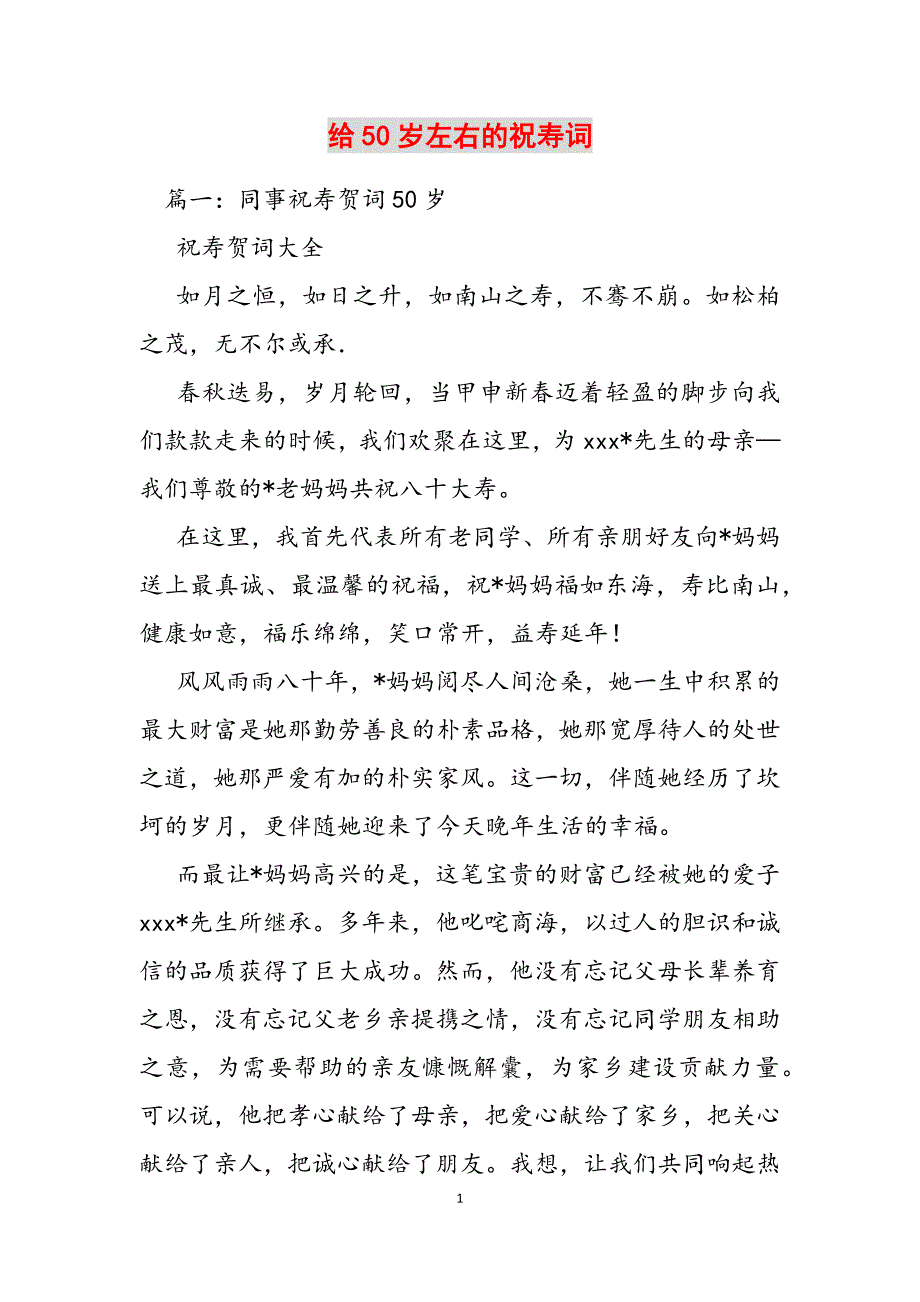 给 50 岁左右的祝寿词
篇一：同事祝寿贺词 50 岁
祝寿贺词大全
如月之恒，如日之升，如南山之寿，不骞不崩。如松柏
之茂，无不尔或承.
春秋迭易，岁月轮回，当甲申新春迈着轻盈的脚步向我
们款款走来的时候，我们欢聚在这里，为 xxx*先生的母亲—
我们尊敬的*老妈妈共祝八十大寿。
在这里，我首先代表所有老同学、所有亲朋好友向*妈妈
送上最真诚、最温馨的祝福，祝*妈妈福如东海，寿比南山，
健康如意，福乐绵绵，笑口常开，益寿延年！
风风雨雨八十年，*妈妈阅尽人间沧桑，她一生中积累的
最大财富是她那勤劳善良的朴素品格，她那宽厚待人的处世
之道，她那严爱有加的朴实家风。这一切，伴随她经历了坎
坷的岁月，更伴随她迎来了今天晚年生活的幸福。
而最让*妈妈高兴的是，这笔宝贵的财富已经被她的爱子
xxx*先生所继承。多年来，他叱咤商海，以过人的胆识和诚
信的品质获得了巨大成功。然而，他没有忘记父母长辈养育
之恩，没有忘记父老乡亲提携之情，没有忘记同学朋友相助
之意，为需要帮助的亲友慷慨解囊，为家乡建设贡献力量。
可以说，他把孝心献给了母亲，把爱心献给了家乡，把关心
献给了亲人，把诚心献给了朋友。我想，让我们共同响起热
1